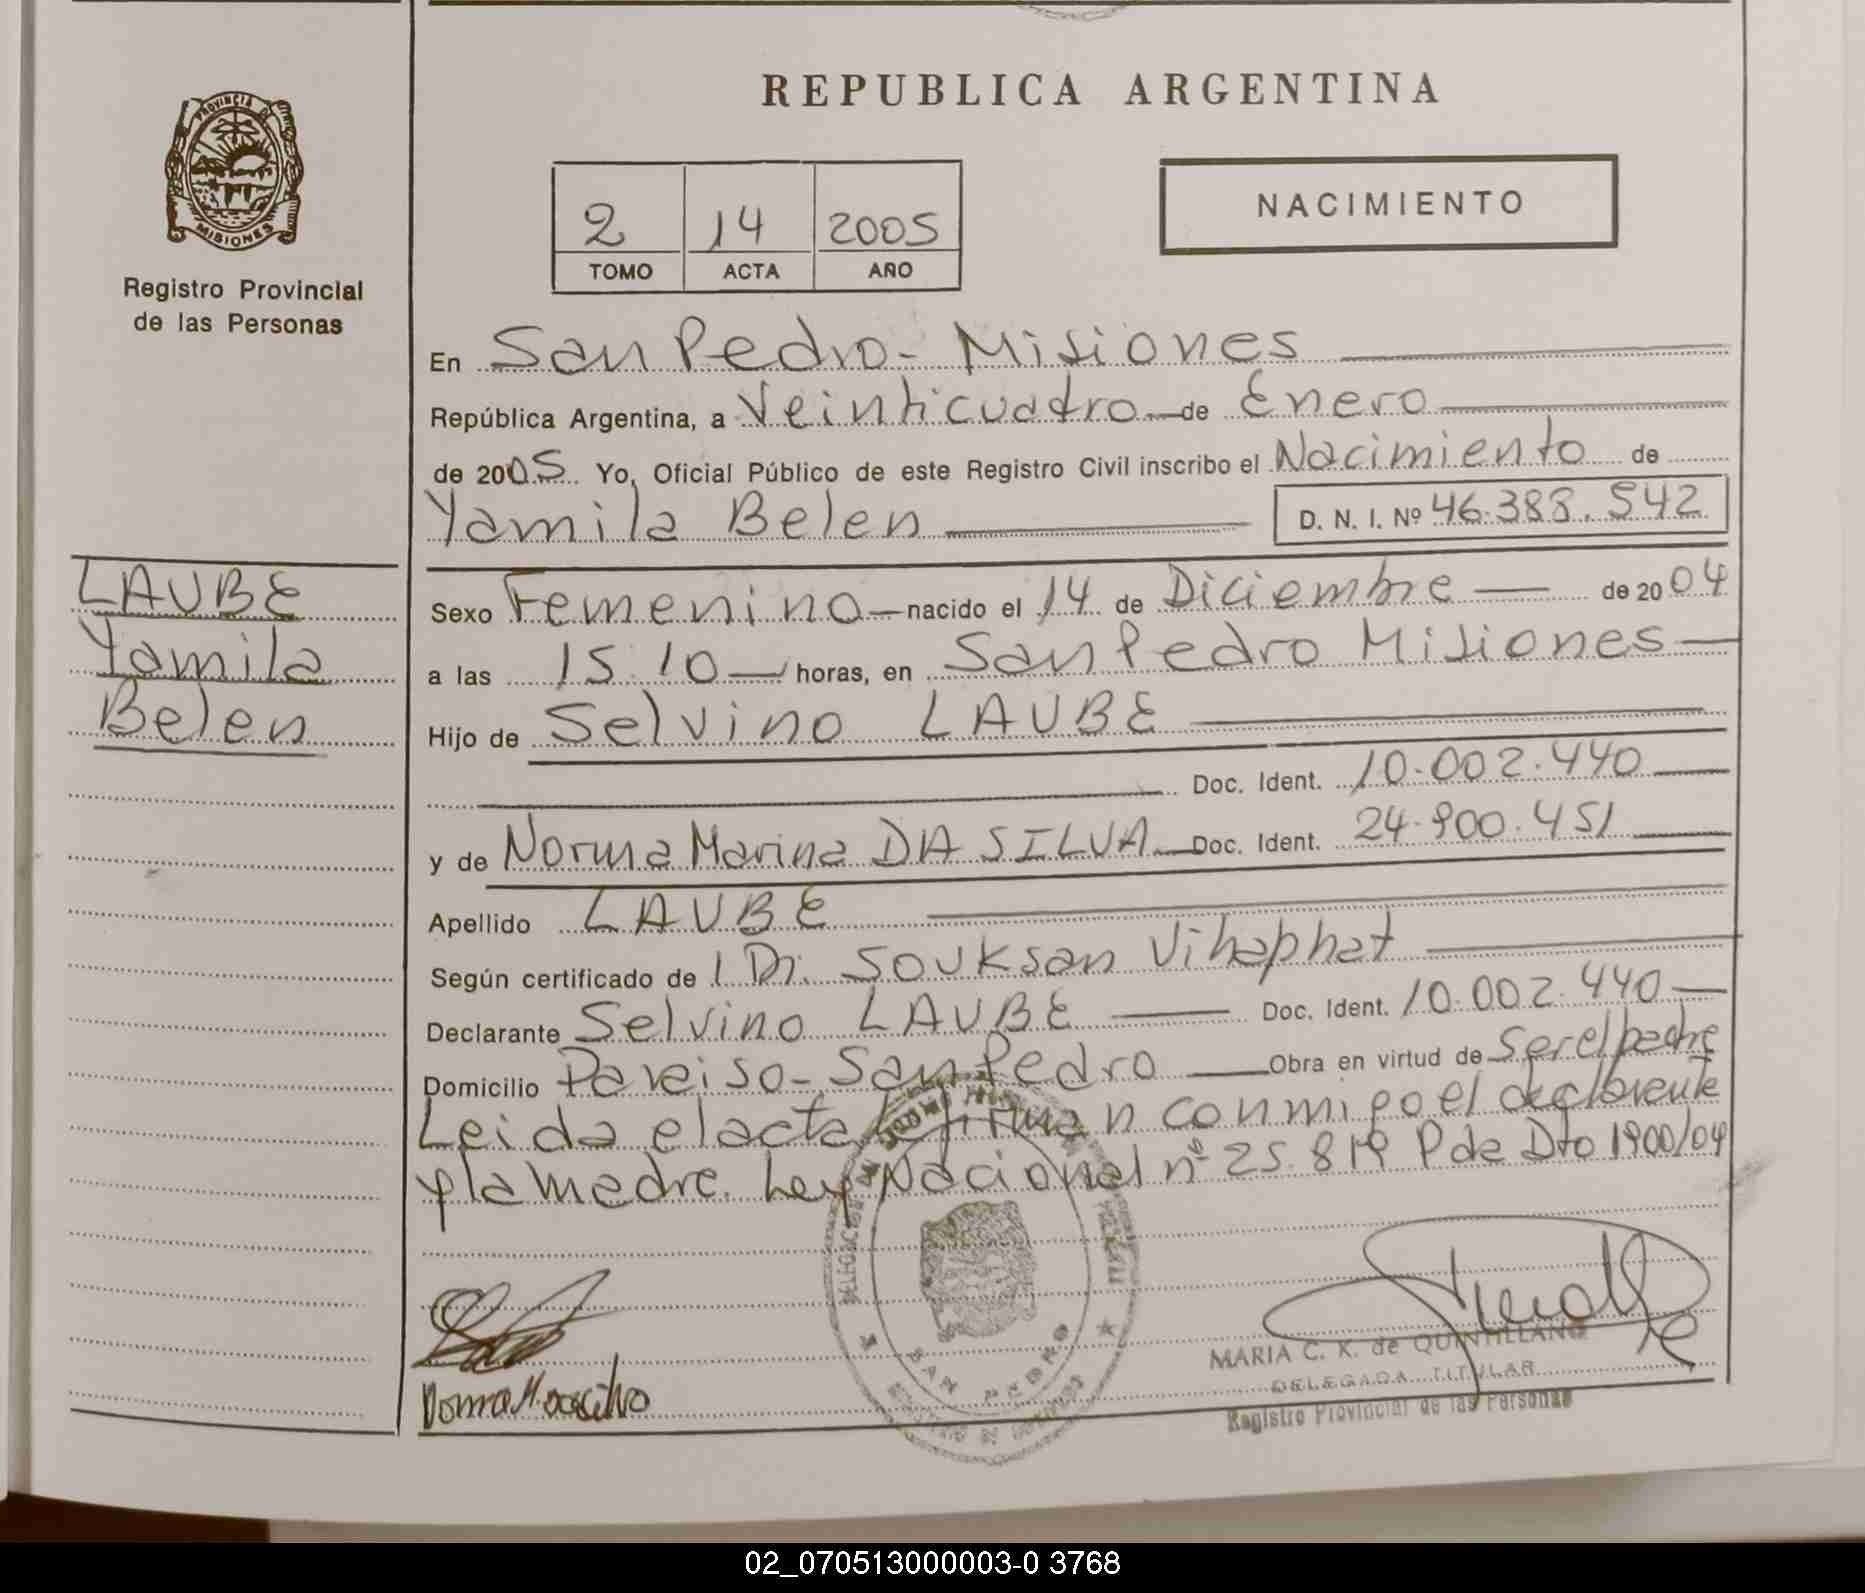 REPUBLICA ARGENTINA
PROVINCIA DE
MISIONES
Registro Provincial
de las Personas
2 14 2005
TOMO ACTA AÑO
NACIMIENTO
En San Pedro - Misiones
República Argentina, a Veinticuatro de Enero
de 2005. Yo, Oficial Público de este Registro Civil inscribo el Nacimiento de
Yamila Belen D. N. I. Nº 46.388.542
LAUBE
Yamila
Belen
Sexo Femenino nacido el 14 de Diciembre de 2004
a las 15.10 horas, en San Pedro Misiones
Hijo de Selvino LAUBE
Doc. Ident. 10.002.440
y de Norma Marina DA SILVA Doc. Ident. 24.900.451
Apellido LAUBE
Según certificado de Dr. Souksan Vihaphat
Declarante Selvino LAUBE Doc. Ident. 10.002.440
Domicilio Paraiso - San Pedro Obra en virtud de Ser el padre
Leida el acta firman conmigo el declarante
y la madre. Ley Nacional nº 25.819 P de Dto 1900/04
Norma M. dasilva
SAN PEDRO
MARIA C. K. de QUINTILLANO
DELEGADA TITULAR
Registro Provincial de las Personas
02_070513000003-0 3768